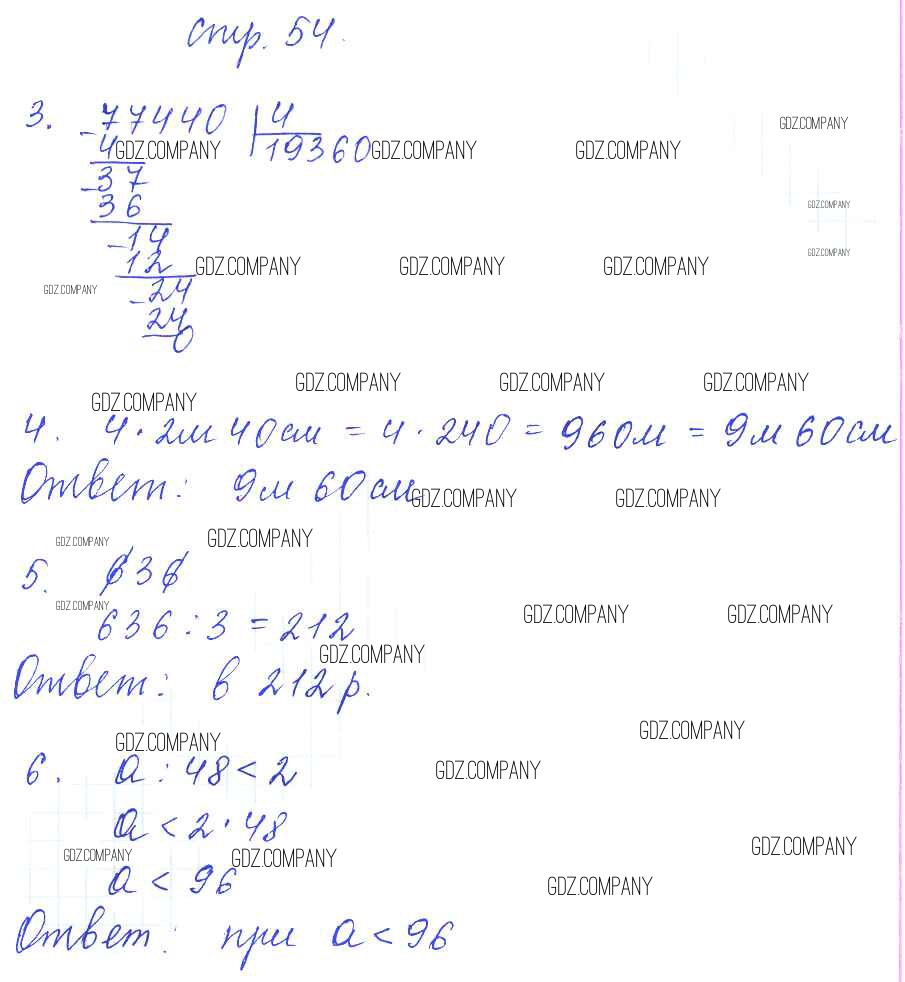 стр. 54.
3. 77440 | 4
4 19360
GDZ.COMPANY GDZ.COMPANY GDZ.COMPANY GDZ.COMPANY
- 37
36
GDZ.COMPANY
- 14
12
GDZ.COMPANY GDZ.COMPANY GDZ.COMPANY GDZ.COMPANY
GDZ.COMPANY
- 24
24
0
GDZ.COMPANY GDZ.COMPANY GDZ.COMPANY
GDZ.COMPANY
4. 4 · 2м 40см = 4 · 240 = 960м = 9м 60см
Ответ: 9м 60см
GDZ.COMPANY GDZ.COMPANY
GDZ.COMPANY GDZ.COMPANY
5. 636
GDZ.COMPANY GDZ.COMPANY GDZ.COMPANY
636 : 3 = 212
GDZ.COMPANY
Ответ: в 212 р.
GDZ.COMPANY
GDZ.COMPANY
6. а : 48 < 2
GDZ.COMPANY
а < 2 · 48
GDZ.COMPANY GDZ.COMPANY GDZ.COMPANY
а < 96
GDZ.COMPANY
Ответ: при а < 96